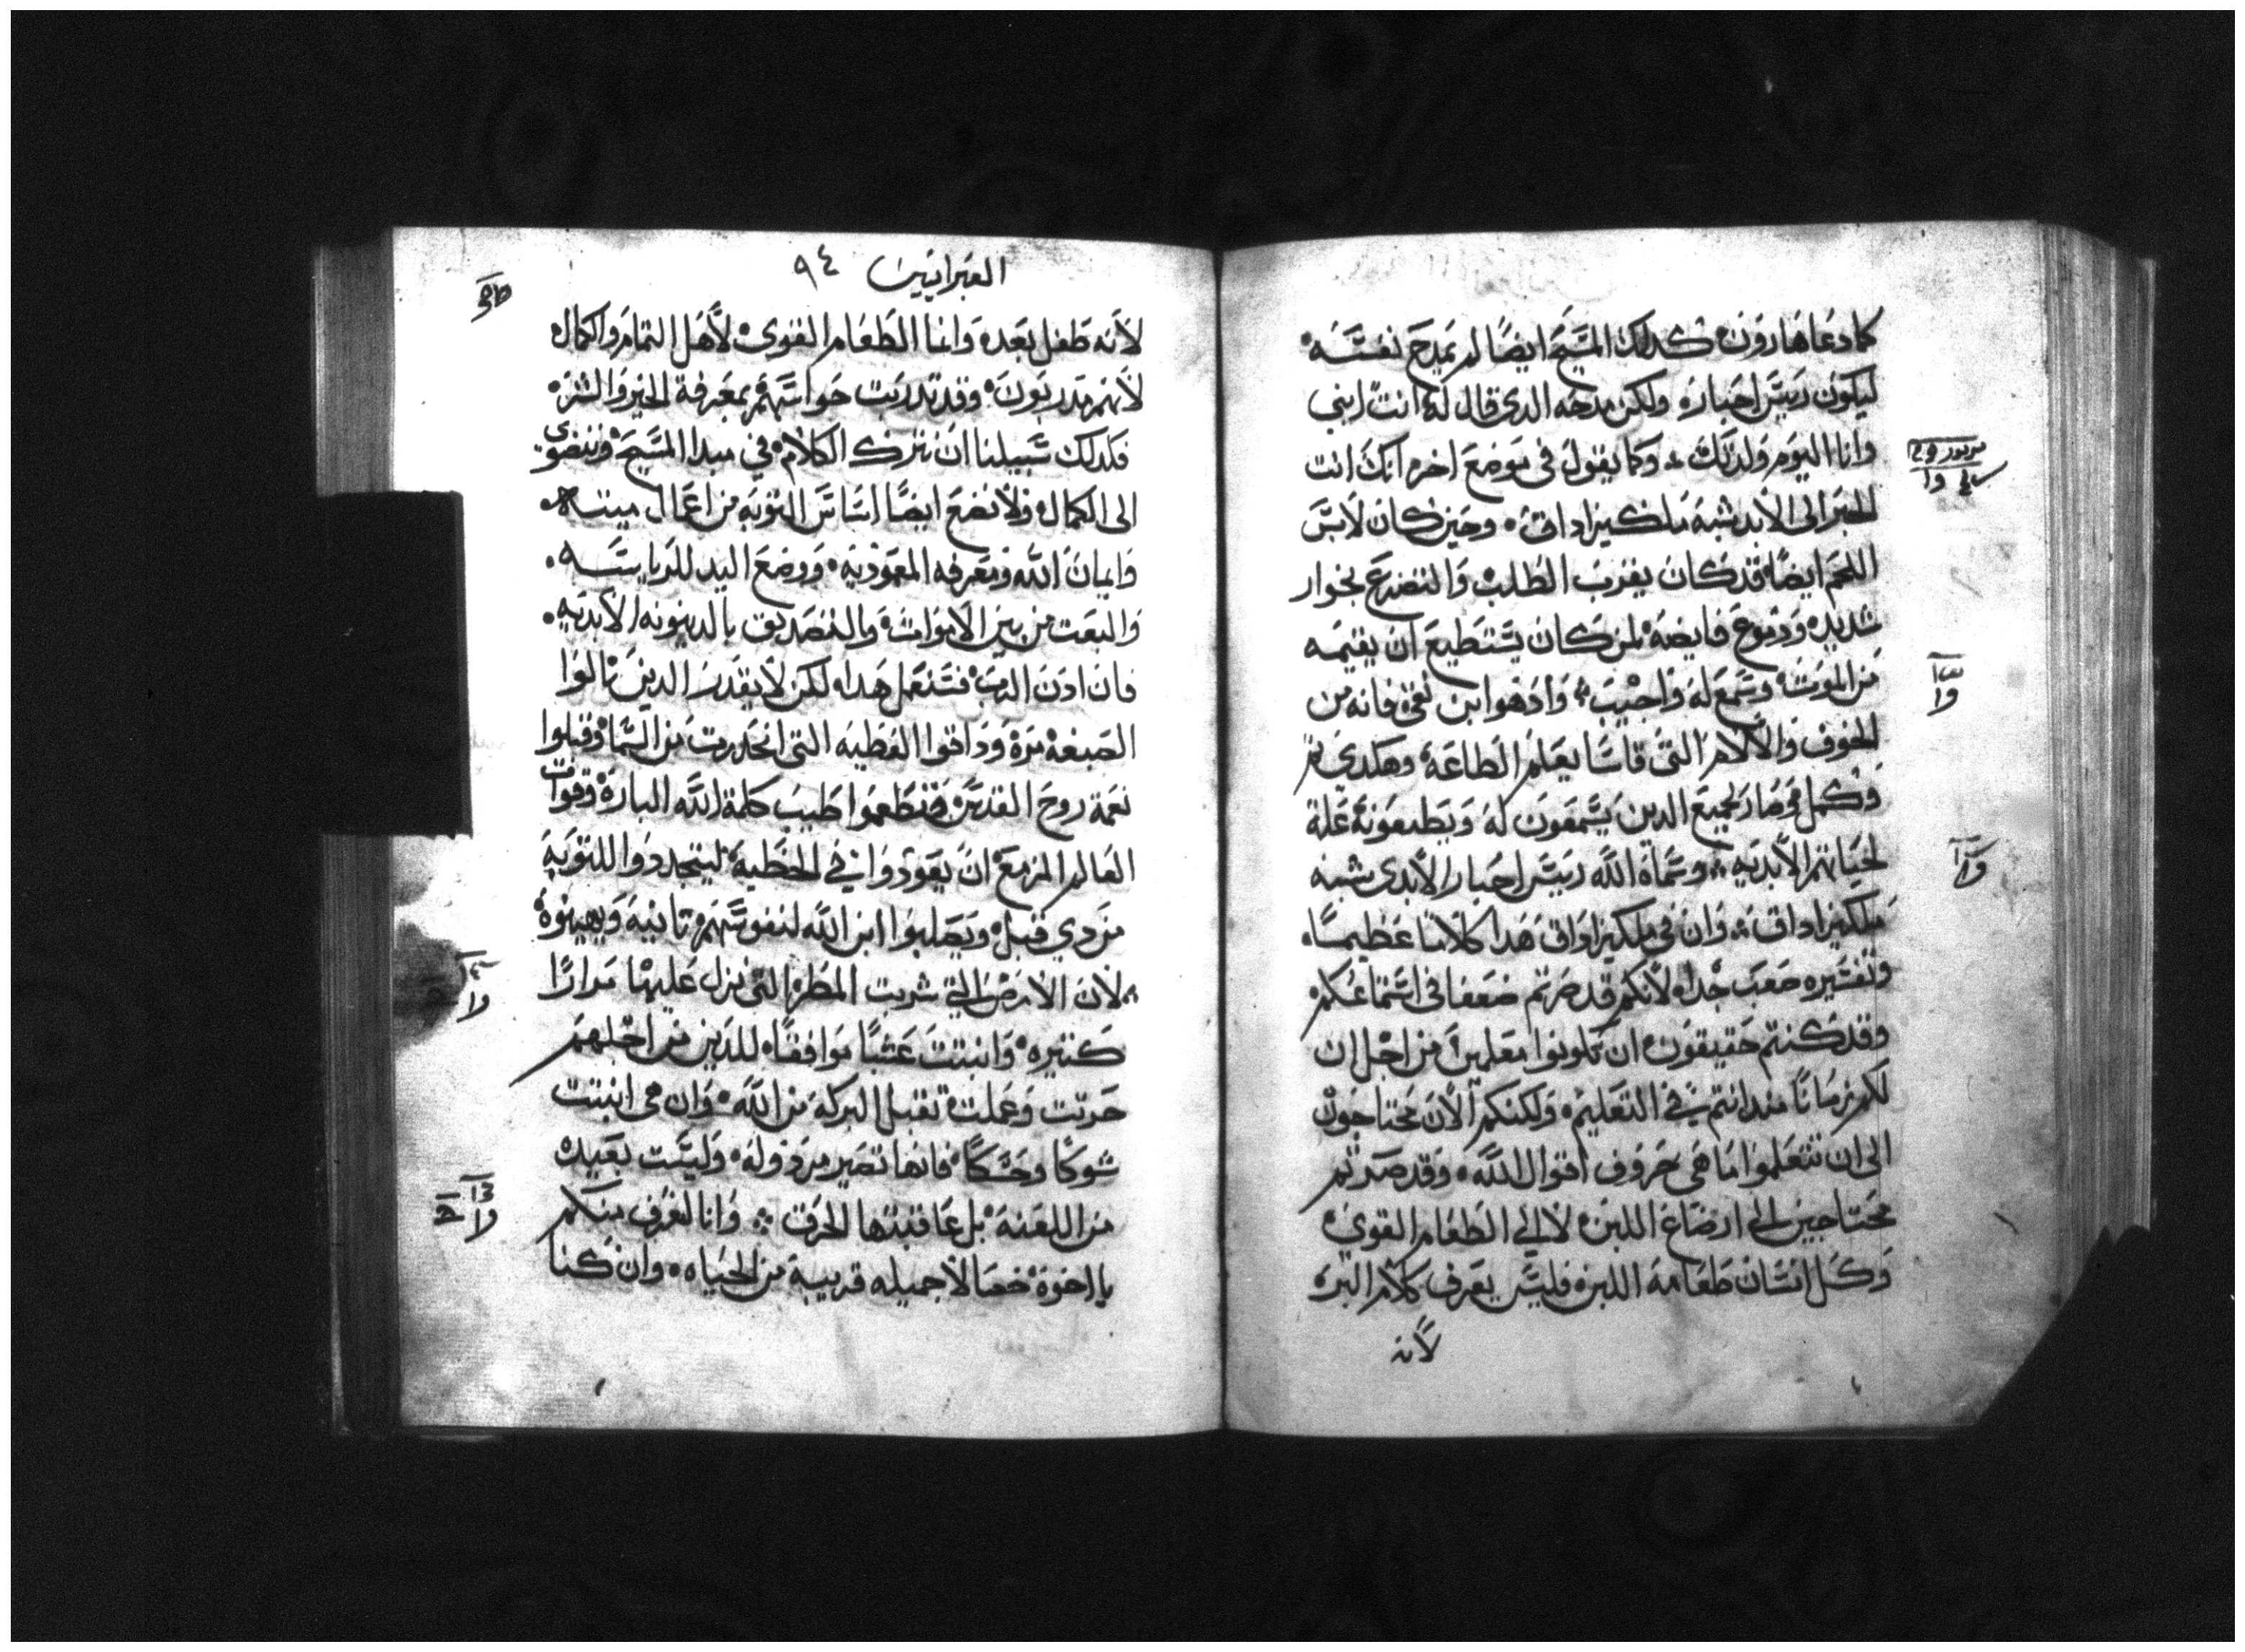 كما دعا هارون كدلك المسيح ايضا لم يمدح نفسه
ليكون رييس احباره ولكن مدحه الدى قال له انت ابني
وانا اليوم ولدتك وكما يقول فى موضع اخر انك انت
الحبر الى الابد شبه ملكيزاداق وحين كان لابس
اللحم ايضا قد كان يقرب الطلب والتضرع بخوار
شديد ودموع فايضه لمن كان يستطيع ان يقيمه
من الموت وسمع له واجيب واد هو ابن فانه من
الخوف والالام التى قاسا يعلم الطاعه وهكدى
وكمل وصار لجميع الدين يسمعون له ويطيعونه علة
لحياتهم الابديه وسماه الله رييس احبار الابدى شبه
ملكيزاداق وان في ملكيزاداق هدا كلاما عظيما
وتفسيره صعب جدا لانكم قد صرتم ضعفا فى استماعكم
وقد كنتم حقيقون ان تكونوا معلمين من اجل ان
لكم زمانا مند انتم في التعليم ولكنكم الان محتاجون
الى ان تتعلموا ما هى حروف اقوال الله وقد صرتم
محتاجين الى ارضاع اللبن لا الى الطعام القوى
وكل انسان طعامه اللبن فليس يعرف كلام البر
لانه
العبرانيين ٩٤
لانه طفل بعد وانما الطعام القوى لاهل التمام والكمال
لانهم مدربون وقد تدربت حواسهم بمعرفة الخير والشر
فكدلك سبيلنا ان نترك الكلام في مبدا المسيح وننضوى
الى الكمال ولا نضع ايضا اساس التوبه من اعمال ميته
وايمان الله ومعرفه المعموديه ووضع اليد للرياسه
والبعت من بين الاموات والتصديق بالدينونه الابديه
فان ادن الرب فسنعمل هدا لكن لا يقدر الدين نالوا
الصبغه مره وداقوا العطيه التى انحدرت من السما وقبلوا
نعمة روح القدس وتطعموا طيب كلمة الله الباره وقوات
العالم المزمع ان يعودوا في الخطيه ليتجددوا للتوبه
من دي قبل ويصلبوا ابن الله لنفوسهم تانيه ويهينوه
لان الارض التي شربت المطر التى نزل عليها مرارا
كتيره وانبتت عشبا موافقا للدين من اجلهم
حرتت وعملت تقبل البركه من الله وان هى انبتت
شوكا وحسكا فانها تصير مردوله وليست بعيد
من اللعنه بل عاقبتها الحرق وانا لنعرف منكم
يا اخوة خصالا جميله قريبة من الحياه وان كنا